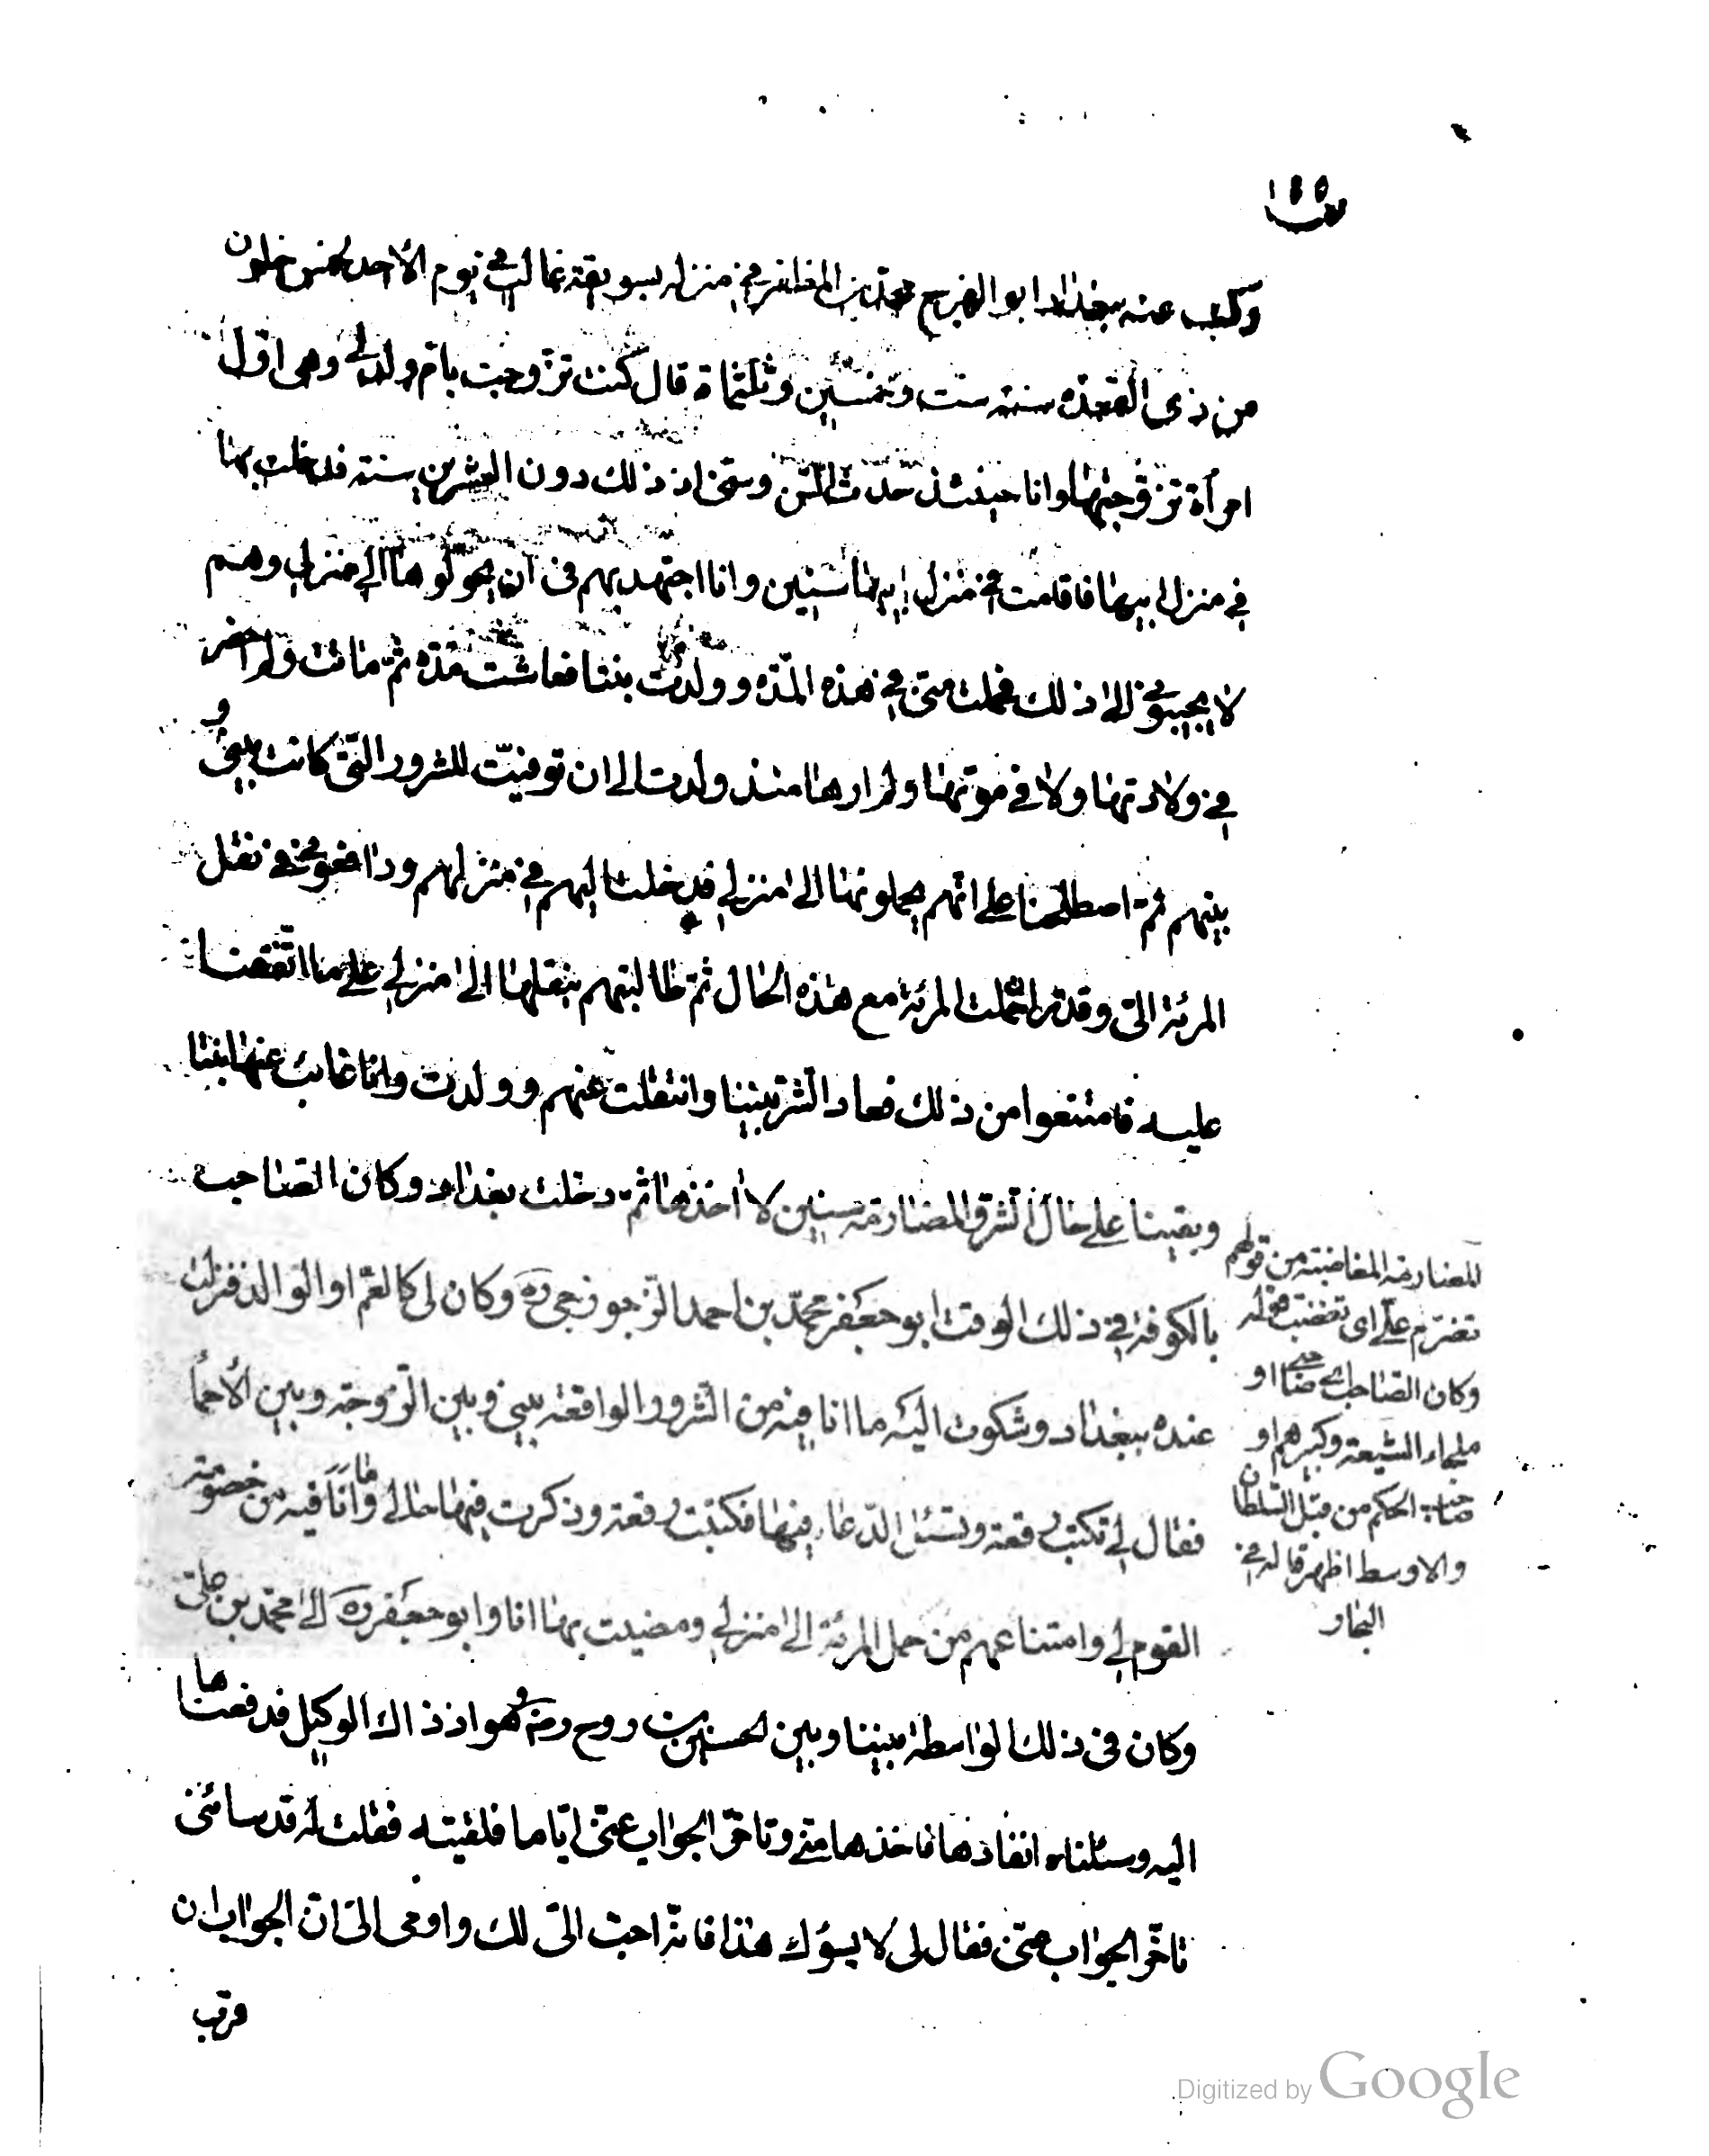 ١٤٥
وكتب عنه ببغداد ابو الفرج محمد بن المظفر في منزله بسويقة غالب في يوم الأحد لخمس خلون
من ذى القعدة سنة ست وخمسين وثلثمائة قال كنت تزوجت بام ولدى وهى اول
امرأة تزوجتها وانا حينئذ حدث السن وسنى اذ ذلك دون العشرين سنة فدخلت بها
في منزل ابيها فاقامت في منزل ابيها سنين وانا اجتهد بهم فى ان يحولوها الى منزلى وهم
لا يجيبوني الى ذلك فحملت منى في هذه المدة وولدت بنتا فعاشت مدة ثم ماتت ولم احضر
في ولادتها ولا في موتها ولم ارها منذ ولدت الى ان توفيت للشرور التى كانت بينى و
بينهم ثم اصطلحنا على انهم يحملونها الى منزلى فدخلت اليهم في منزلهم ودافعونى في نقل
المرئة الى وقدر ان حملت المرئة مع هذه الحال ثم طالبتهم بنقلها الى منزلى على ما اتفقنا
عليه فامتنعوا من ذلك فعاد الشر بيننا وانتقلت عنهم وولدت وانا غائب عنها بنتا
وبقينا على حال الشر والمضارمة سنين لا اخذها ثم دخلت بغداد وكان الصاحب
بالكوفة في ذلك الوقت ابو جعفر محمد بن احمد الزجوزجى ره وكان لى كالعم او الوالد فنزلت
عنده ببغداد وشكوت اليه ما انا فيه من الشرور الواقعة بينى وبين الزوجة وبين الأحماء
فقال لى تكتب رقعة وتسئل الدعاء فيها فكتبت رقعة وذكرت فيها حالى وما انا فيه من خصومة
القوم لى وامتناعهم من حمل المرئة الى منزلى ومضيت بها انا وابو جعفر ره الى محمد بن على
وكان فى ذلك الواسطة بيننا وبين الحسين بن روح رض وهو اذ ذاك الوكيل فدفعناها
اليه وسئلناه انفاذها فاخذها منى وتاخر الجواب عنى اياما فلقيته فقلت له قد سائنى
تاخر الجواب عنى فقال لى لا يسؤك هذا فانه احب الى لك واومى الى ان الجواب ان
قرب
المضارمة المغاضبة من قولهم
تضرم على اى تغضب قوله
وكان الصاحب اى
ملجاء الشيعة وكبيرهم او
صاحب الحكم من قبل السلطان
والاوسط اظهر قاله في
البحار
Digitized by Google